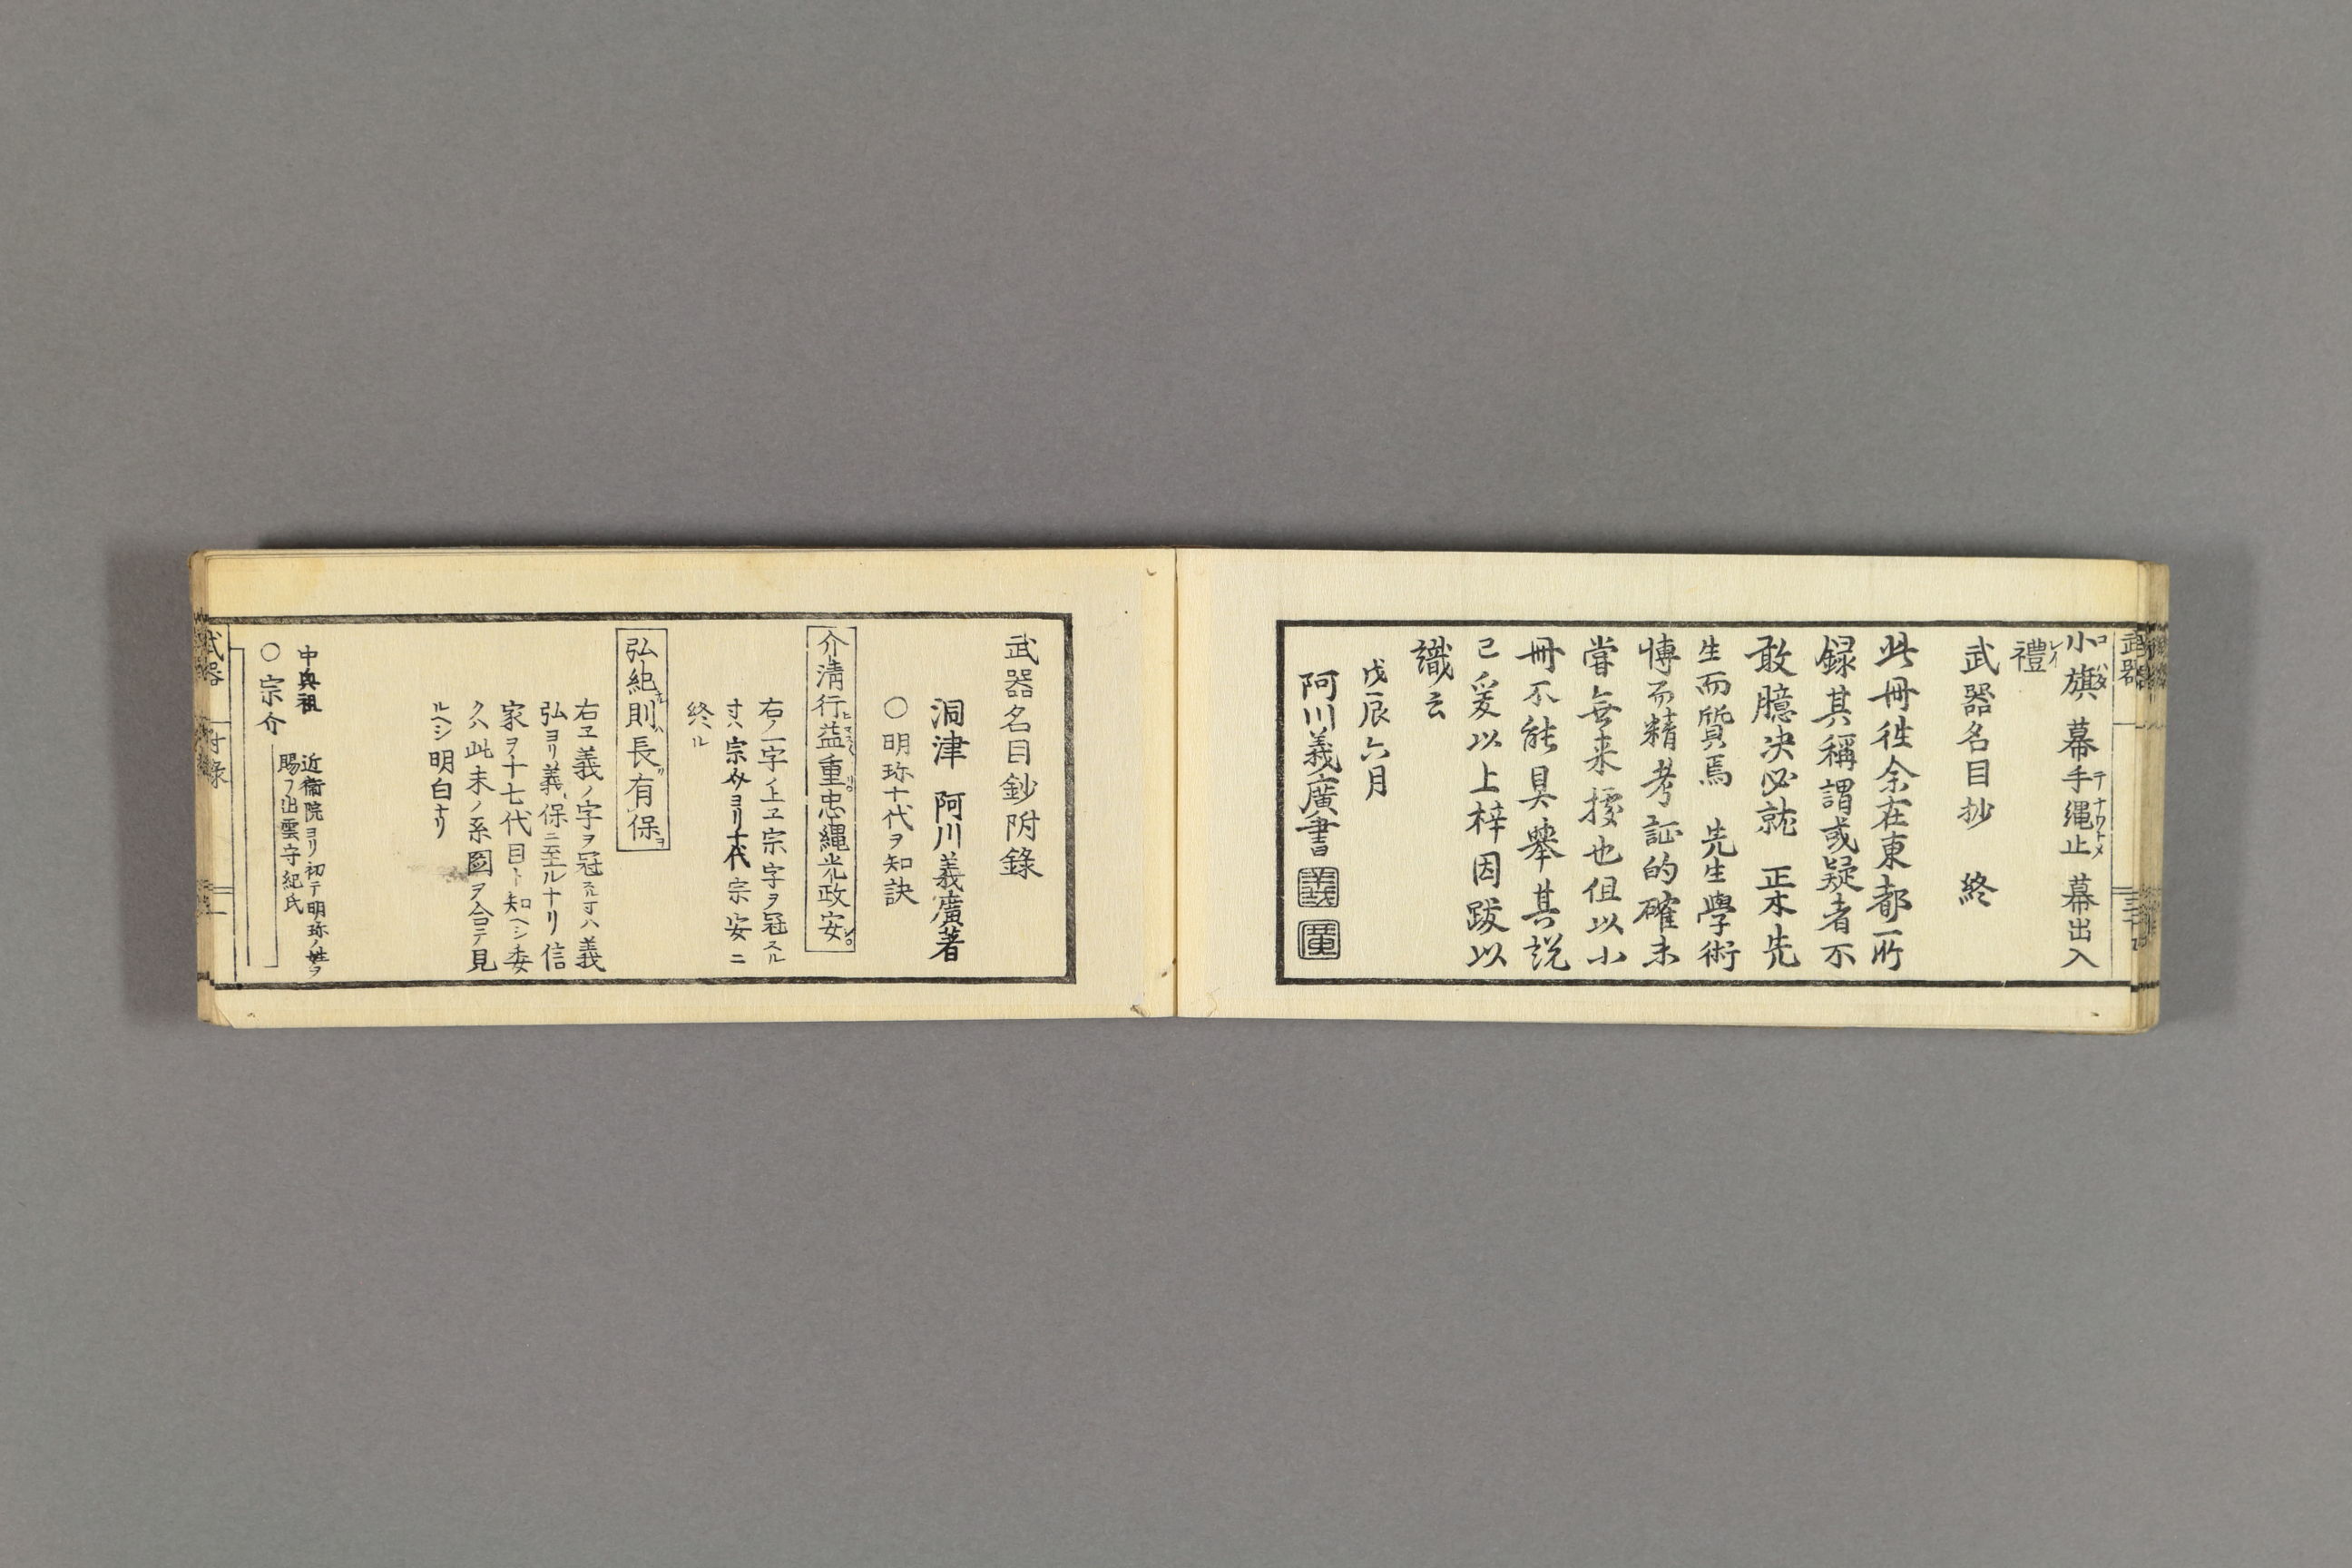 小旗 幕手縄止 幕出入
禮
武器名目抄 終
此冊往余在東都所
録其稱謂或疑者不
敢臆决必就 正木先
生而質焉 先生學術
博而精考証的確未
嘗無来援也但以小
冊不能具舉其説
已爰以上梓因跋以
識云
戊辰六月
阿川義廣書
武器名目鈔附錄
洞津 阿川義廣著
〇明珎十代ヲ知訣
介清行益重忠縄光政安
右ノ一字ノ上エ宗字ヲ冠スル
寸ハ宗介ヨリ十代宗安ニ
終ハル
弘紀則長有保
右エ義ノ字ヲ冠スル寸ハ義
弘ヨリ義保ニ至ルナリ信
家ヲ十七代目ト知ヘシ委
クハ此末ノ系圖ヲ合テ見
ルヘシ明白ナリ
中興祖
〇宗介
近衞院ヨリ初テ明珎ノ姓ヲ
賜フ出雲守紀氏